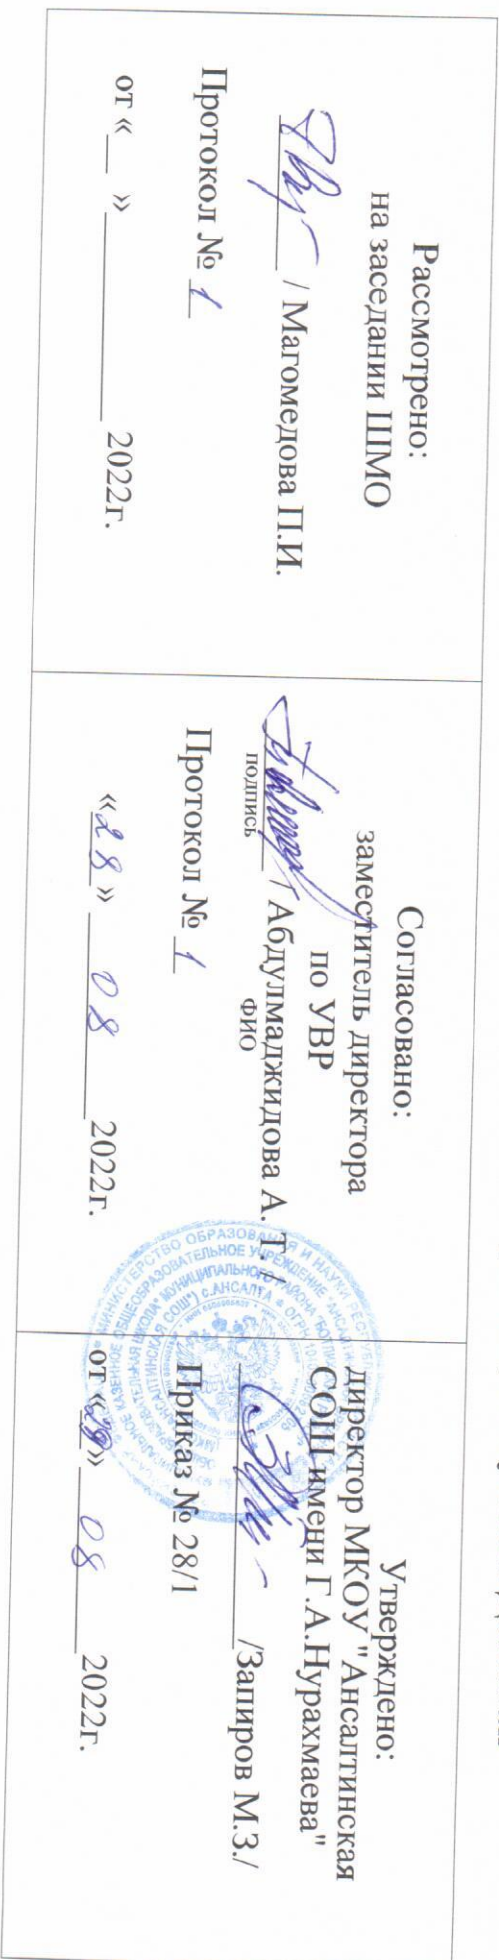 Рассмотрено:
на заседании ШМО
/ Магомедова П.И.
Протокол № 1
от «__ » ____________ 2022г.
Согласовано:
заместитель директора
по УВР
/ Абдулмаджидова А. Т. /
подпись ФИО
Протокол № 1
«28» 08 2022г.
Утверждено:
директор МКОУ "Ансалтинская
СОШ имени Г.А.Нурахмаева"
/Запиров М.З./
Приказ № 28/1
от « » 08 2022г.